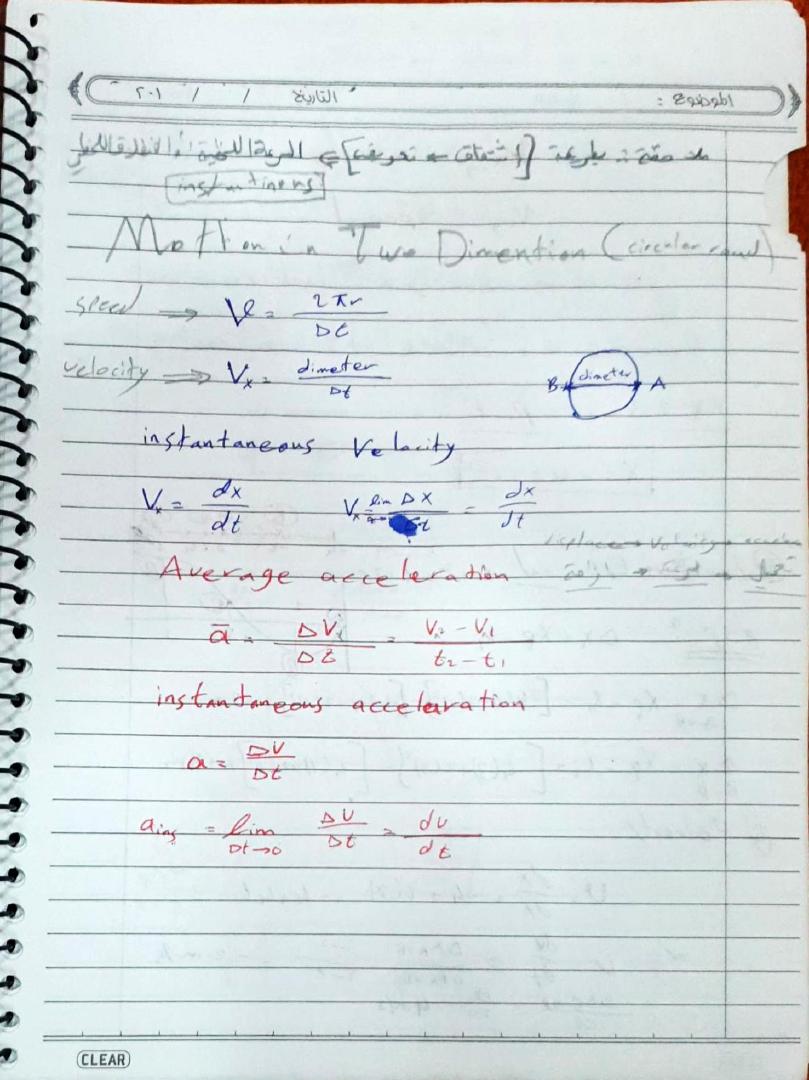 الموضوع : التاريخ / / ٢٠١
ملاحظة : طريقة [اشتقاق + تعويض] ⇐ السرعة اللحظية أو
[instantinens]
Mottion in Two Dimention (circular round)
speed ⇒ V = 2πr / Δt
velocity ⇒ Vx = dimeter / Δt
B dimeter A
instantaneous Velocity
Vx = dx / dt Vx = lim ΔX / Δt = dx / dt
displace → Velocity →
Average acceleration
تعجيل سرعة ازاحة
ā = ΔVx / Δt = Vx2 - Vx1 / t2 - t1
instantaneous acceleration
a = ΔV / Δt
a ins = lim Δt→0 ΔV / Δt = dv / dt
CLEAR